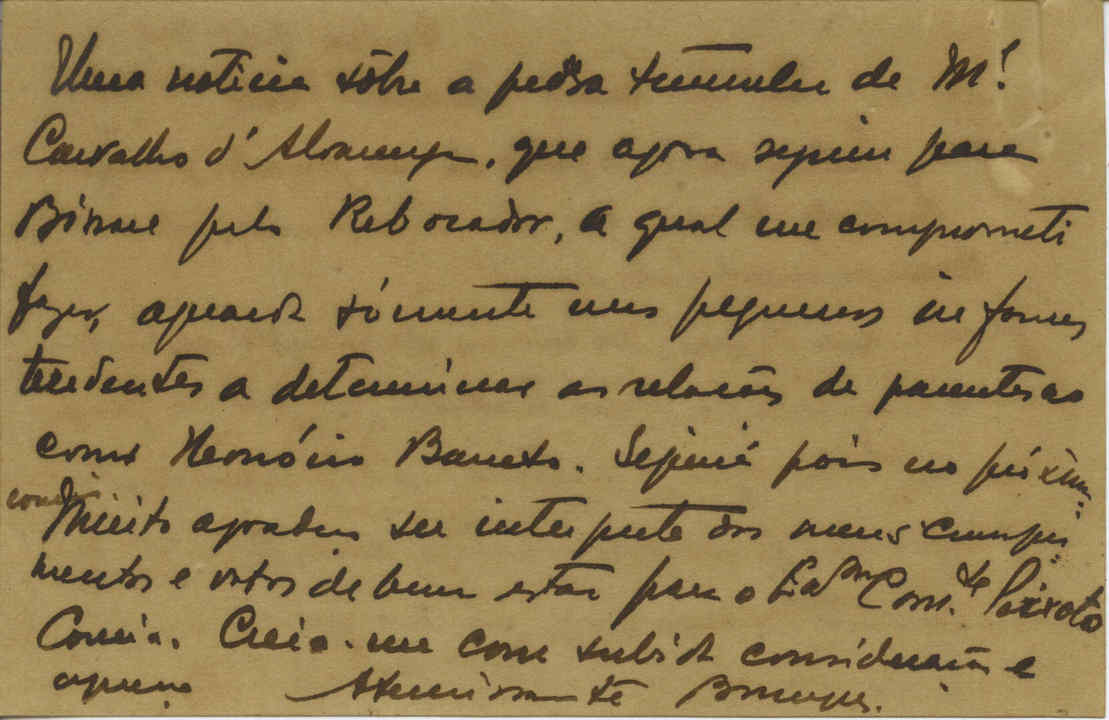 Uma notícia sôbre a pedra tumular de M.ª
Carvalho d'Alvarenga, que agora seguiu para
Bissau pelo Rebocador, a qual me comprometi
fazer, aguarda sómente uns pequenos informes
tendentes a determinar as relações de parentesco
com Honório Barreto. Seguirá pois no próximo
correio
Muito agradeço ser interprete dos meus cumpri-
mentos e votos de bem estar para o Com.te Peixoto
Correia. Creia-me com subida consideração e
apreço Atenciosamente